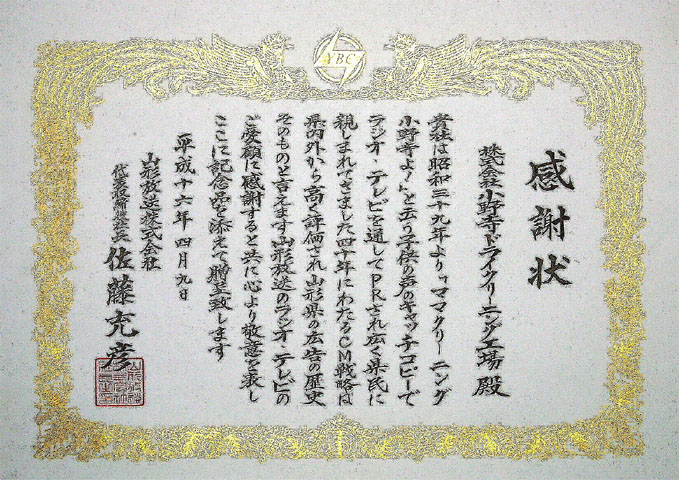 YBC
感謝状
株式会社小野寺ドライクリーニング工場 殿
貴社は昭和三十九年より「ママクリーニング
小野寺よ!」と云う子供の声のキャッチコピーで
ラジオ・テレビを通してPRされ広く県民に
親しまれてきました四十年にわたるCM戦略は
県内外から高く評価され山形県の広告の歴史
そのものと言えます山形放送のラジオ・テレビの
ご愛顧に感謝すると共に心より敬意を表し
ここに記念品を添えて贈呈致します
平成十六年四月九日
山形放送株式会社
代表取締役社長 佐藤充彦